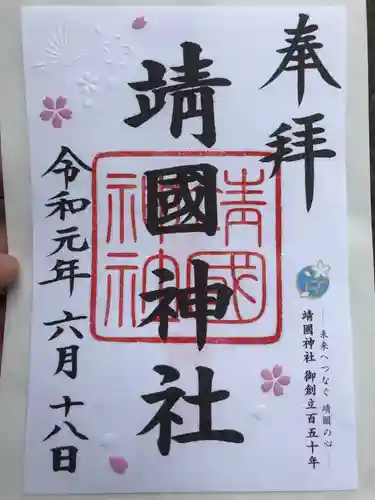 奉拝
未来へつなぐ 靖國の心
靖國神社 御創立百五十年
靖國神社
靖國神社
令和元年 六月 十八日